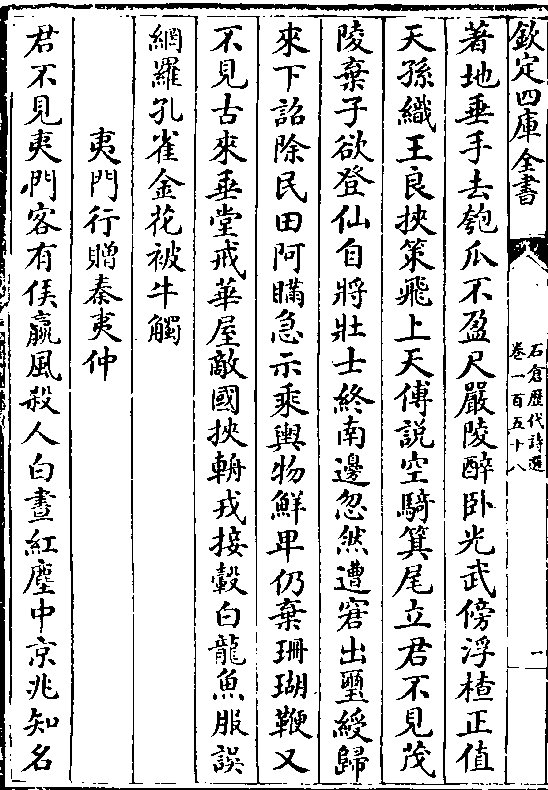 欽定四庫全書
石倉歷代詩選
卷一百五十八
一
著地垂手去匏瓜不盈尺嚴陵醉卧光武傍浮楂正值
天孫織王良挾策飛上天傅説空騎箕尾立君不見茂
陵棄子欲登仙自將壯士終南邊忽然遭窘出璽綬歸
來下詔除民田阿瞞急示乘輿物鮮卑仍棄珊瑚鞭又
不見古來垂堂戒華屋敵國挾輈戎接轂白龍魚服誤
網羅孔雀金花被牛觸
夷門行贈秦夷仲
君不見夷門客有侯嬴風殺人白晝紅塵中京兆知名